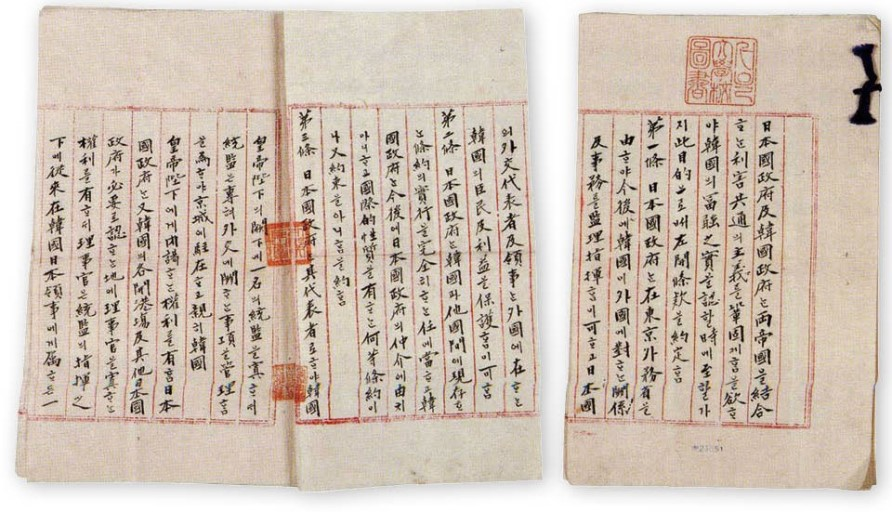 서울
大學校
圖書
日本國政府及韓國政府는兩帝國을結合
ᄒᆞ는利害共通의主義를鞏固케ᄒᆞᆷ을欲ᄒᆞ
야韓國의富强之實을認ᄒᆞᆯ時에至ᄒᆞᆯ가
지此目的으로써左開條款을約定ᄒᆞᆷ
第一條 日本國政府는在東京外務省을
由ᄒᆞ야今後에韓國이外國에對ᄒᆞ는關係
及事務를監理指揮ᄒᆞᆷ이可ᄒᆞ고日本國
의外交代表者及領事는外國에在ᄒᆞ는
韓國의臣民及利益을保護ᄒᆞᆷ이可ᄒᆞᆷ
第二條 日本國政府는韓國과他國間에現存ᄒᆞ
는條約의實行을完全히ᄒᆞ는任에當ᄒᆞ고韓
國政府는今後에日本國政府의仲介에由치
아니ᄒᆞ고國際的性質을有ᄒᆞ는何等條約이
나又約束을아니ᄒᆞᆷ을約ᄒᆞᆷ
第三條 日本國政府는其代表者로ᄒᆞ야韓國
皇帝陛下의闕下에一名의統監을寘ᄒᆞ되
統監은專혀外交에關ᄒᆞ는事項을管理ᄒᆞᆷ
을爲ᄒᆞ야京城에駐在ᄒᆞ고親히韓國
皇帝陛下에게內謁ᄒᆞ는權利를有ᄒᆞᆷ日本
國政府는又韓國의各開港場及其他日本國
政府가必要로認ᄒᆞ는地에理事官을寘ᄒᆞ는
權利를有ᄒᆞ되理事官은統監의指揮之
下에從來在韓國日本領事에게屬ᄒᆞ든一